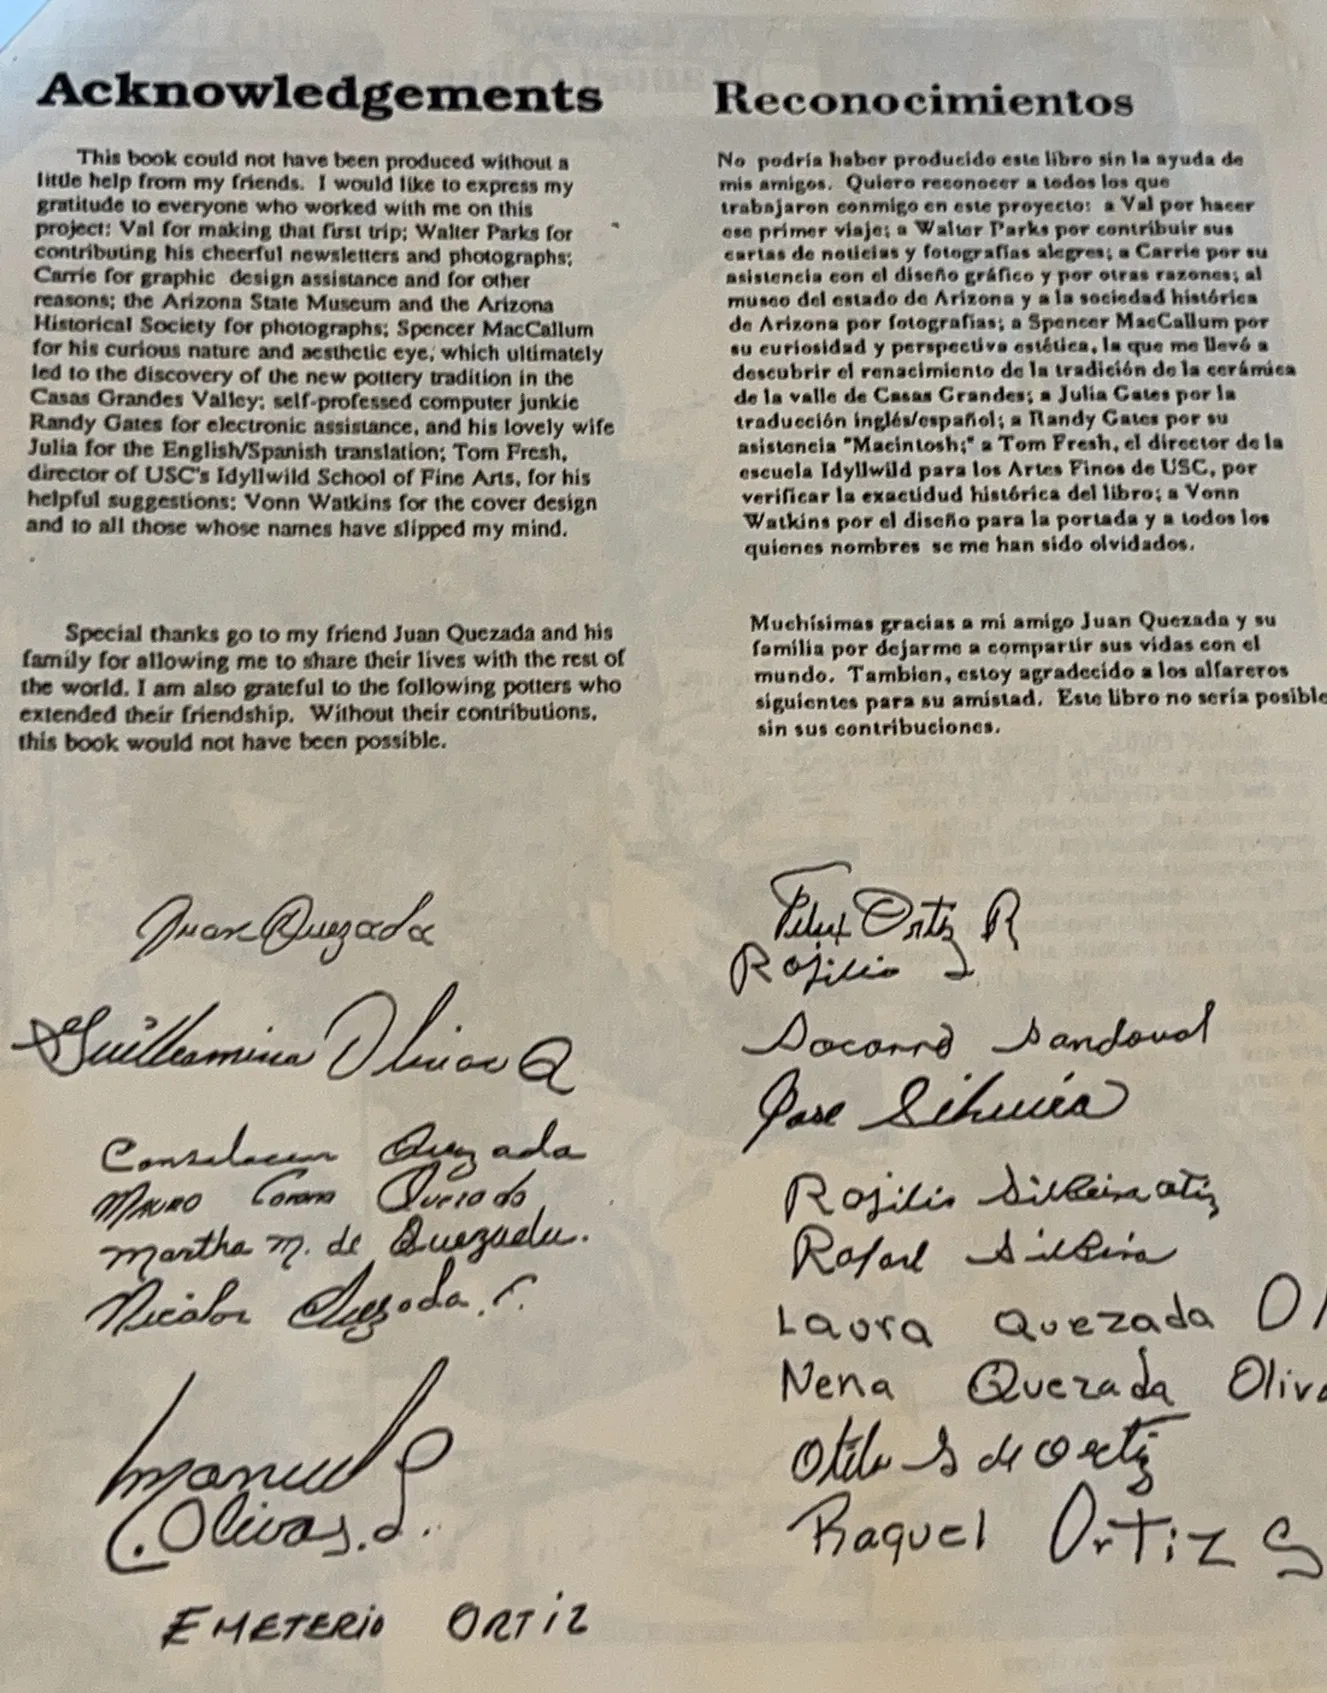 Acknowledgements
This book could not have been produced without a
little help from my friends. I would like to express my
gratitude to everyone who worked with me on this
project: Val for making that first trip; Walter Parks for
contributing his cheerful newsletters and photographs;
Carrie for graphic design assistance and for other
reasons; the Arizona State Museum and the Arizona
Historical Society for photographs; Spencer MacCallum
for his curious nature and aesthetic eye, which ultimately
led to the discovery of the new pottery tradition in the
Casas Grandes Valley; self-professed computer junkie
Randy Gates for electronic assistance, and his lovely wife
Julia for the English/Spanish translation; Tom Fresh,
director of USC's Idyllwild School of Fine Arts, for his
helpful suggestions; Vonn Watkins for the cover design
and to all those whose names have slipped my mind.
Special thanks go to my friend Juan Quezada and his
family for allowing me to share their lives with the rest of
the world. I am also grateful to the following potters who
extended their friendship. Without their contributions,
this book would not have been possible.
Juan Quezada
Guillermina Olivas Q
Quezada
Mauro Corona Quezada
Martha M. de Quezada.
Nicolas Quezada. C.
Manuel
Olivas
EMETERIO ORTIZ
Reconocimientos
No podría haber producido este libro sin la ayuda de
mis amigos. Quiero reconocer a todos los que
trabajaron conmigo en este proyecto: a Val por hacer
ese primer viaje; a Walter Parks por contribuir sus
cartas de noticias y fotografías alegres; a Carrie por su
asistencia con el diseño gráfico y por otras razones; al
museo del estado de Arizona y a la sociedad histórica
de Arizona por fotografías; a Spencer MacCallum por
su curiosidad y perspectiva estética, la que me llevó a
descubrir el renacimiento de la tradición de la cerámica
de la valle de Casas Grandes; a Julia Gates por la
traducción inglés/español; a Randy Gates por su
asistencia "Macintosh;" a Tom Fresh, el director de la
escuela Idyllwild para los Artes Finos de USC, por
verificar la exactidud histórica del libro; a Vonn
Watkins por el diseño para la portada y a todos los
quienes nombres se me han sido olvidados.
Muchísimas gracias a mi amigo Juan Quezada y su
familia por dejarme a compartir sus vidas con el
mundo. Tambien, estoy agradecido a los alfareros
siguientes para su amistad. Este libro no sería posible
sin sus contribuciones.
Felix Ortiz R
Rojilio
Socorro Sandoval
Jose Silveira
Rojilio Silveira Ortiz
Rafael Silveira
Laura Quezada
Nena Quezada
Otila S de Ortiz
Raquel Ortiz S